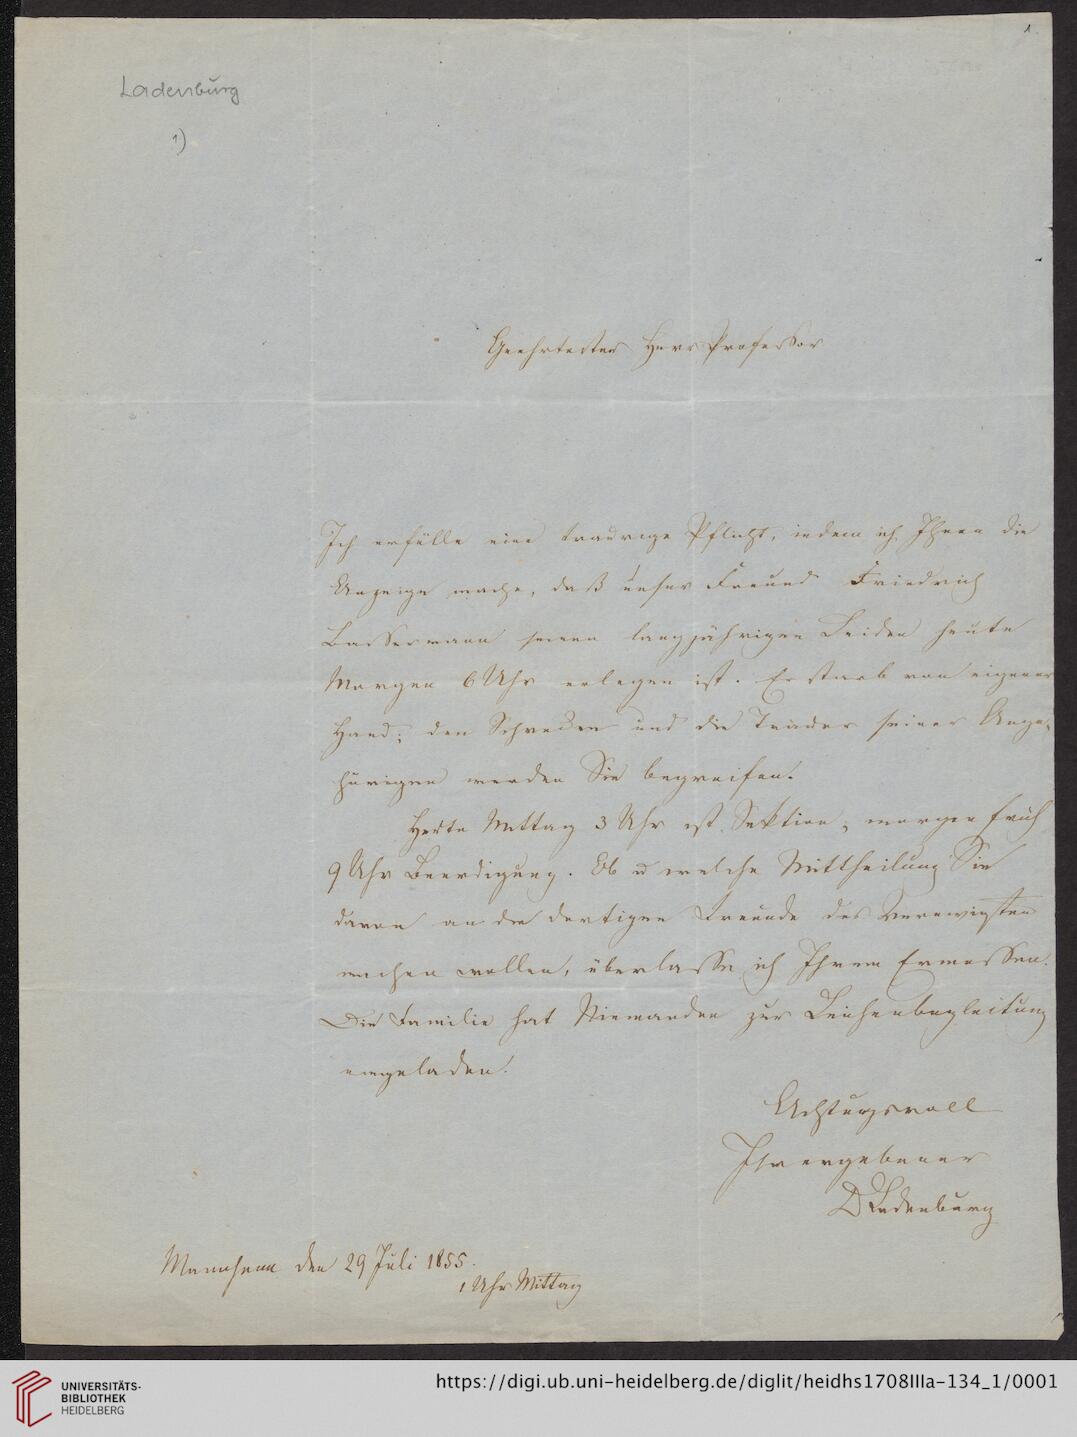 1.
Ladenburg
1)
Geehrtester Herr Professor
Ich erfülle eine traurige Pflicht, indem ich Ihnen die
Anzeige mache, daß unser Freund Friedrich
Bassermann seinen langjährigen Leiden heute
Morgen 6 Uhr erlegen ist. Er starb von eigener
Hand; den Schrecken und die Trauer seiner Ange-
hörigen werden Sie begreifen.
Heute Mittag 3 Uhr ist Sektion, morgen früh
9 Uhr Beerdigung. Ob u welche Mittheilung Sie
davon an die dortigen Freunde des Verewigten
machen wollen, überlasse ich Ihrem Ermessen.
Die Familie hat Niemanden zur Leichenbegleitung
eingeladen.
Achtungsvoll
Ihr ergebener
D Ladenburg
Mannheim den 29 Juli 1855.
1 Uhr Mittag
UNIVERSITÄTS-
BIBLIOTHEK
HEIDELBERG
https://digi.ub.uni-heidelberg.de/diglit/heidhs1708IIIa-134_1/0001